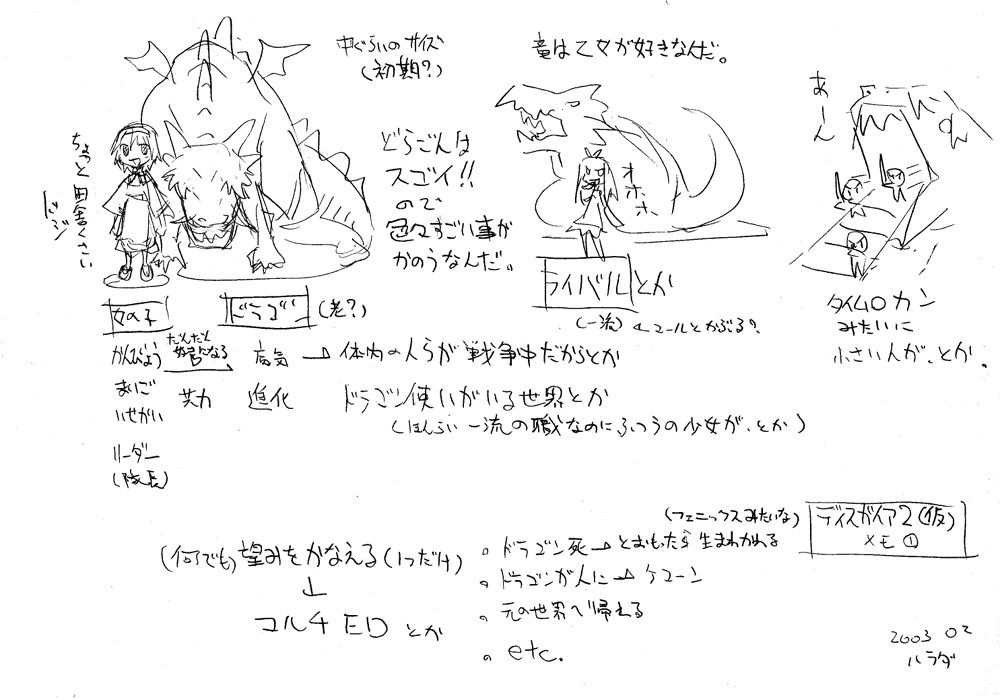 中ぐらいのサイズ
(初期?)
ちょっと田舎くさい
ドジ
どらごんは
スゴイ!!
ので
色々すごい事が
かのうなんだ。
竜は乙女が好きなんだ。
オホホ、
あーん
女の子
ドラゴン
(老?)
ライバル
とか
(一流)
タイムロカン
みたいに
小さい人が、とか。
かんびょう
だんだん
好きになる
病気→体内の人らが戦争中だからとか
まいご
いせかい
共力
進化
ドラゴン使いがいる世界とか
(ほんらい一流の職なのにふつうの少女が、とか)
リーダー
(隊長)
(何でも)望みをかなえる(1つだけ)
↓
マルチEDとか
(フェニックスみたいな)
。ドラゴン死→とおもったら生まれかわる
。ドラゴンが人に→ケコーン
。元の世界へ帰れる
。etc.
ディスガイア2(仮)
メモ①
2003 02
ハラダ